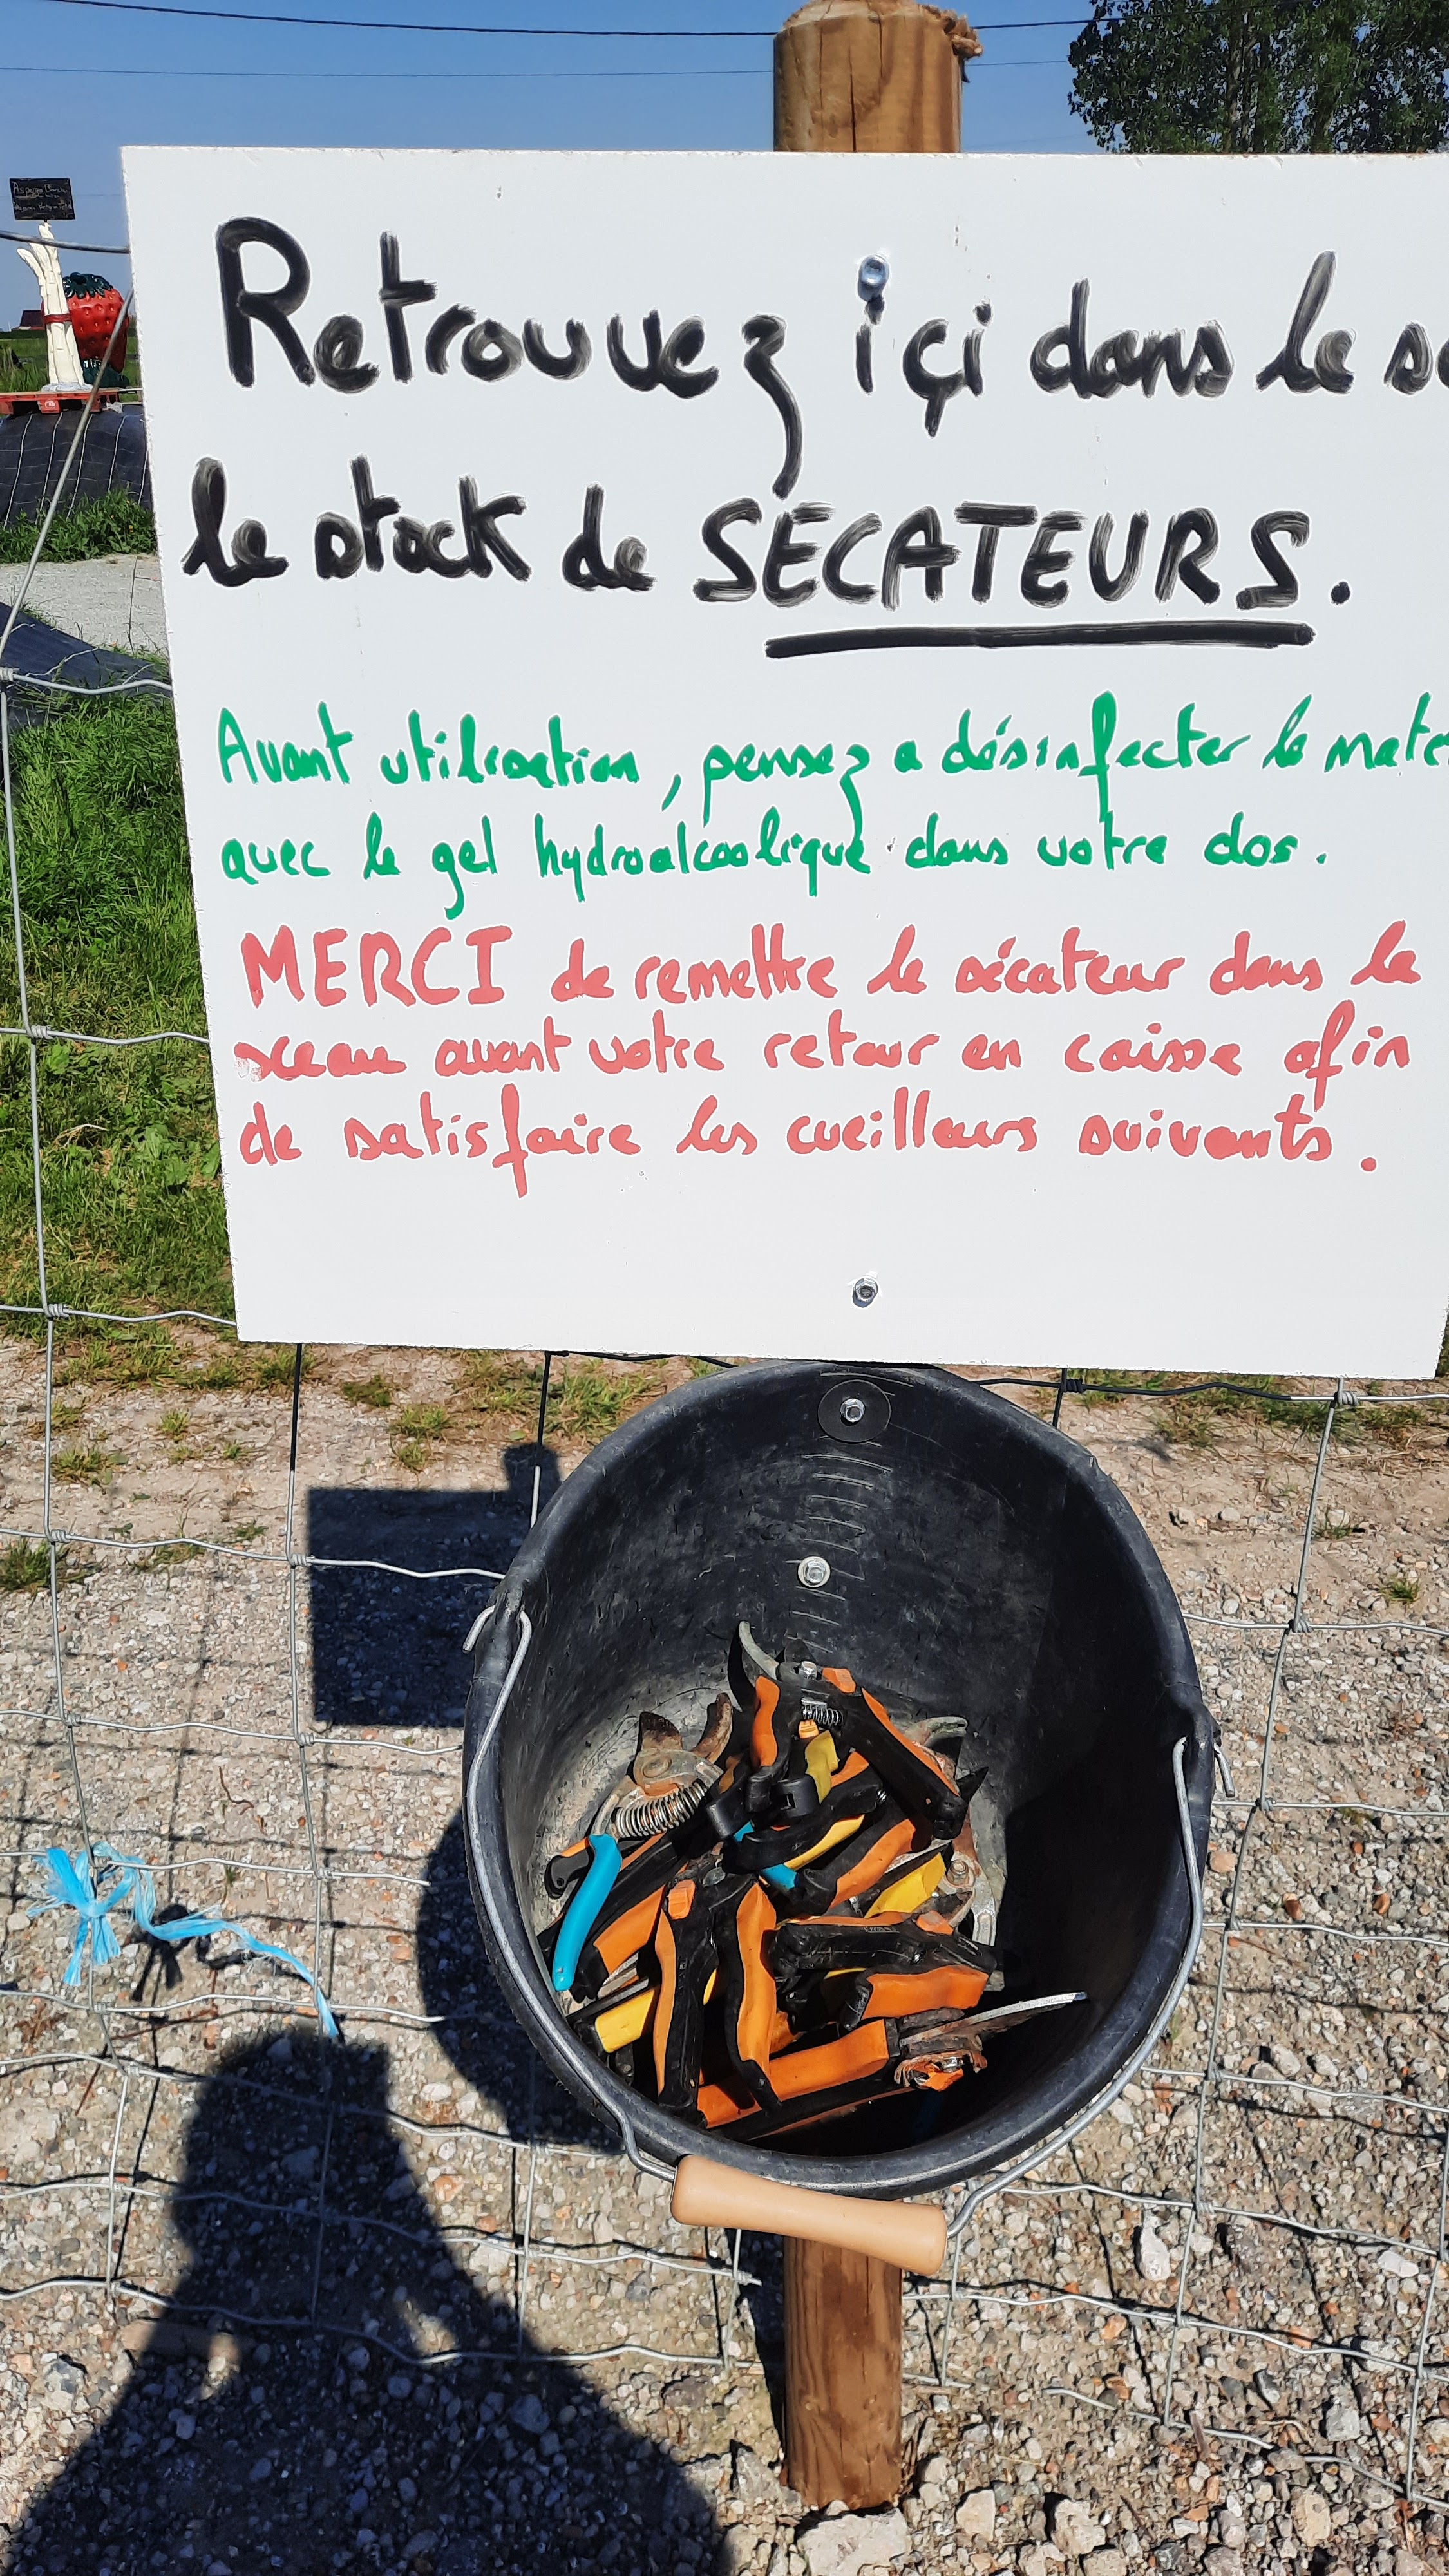 Retrouvez içi dans le se
le stock de SECATEURS.
Avant utilisation, pensez a désinfecter le mate
avec le gel hydroalcoolique dans votre dos.
MERCI de remettre le sécateur dans le
sceau avant votre retour en caisse afin
de satisfaire les cueilleurs suivants.